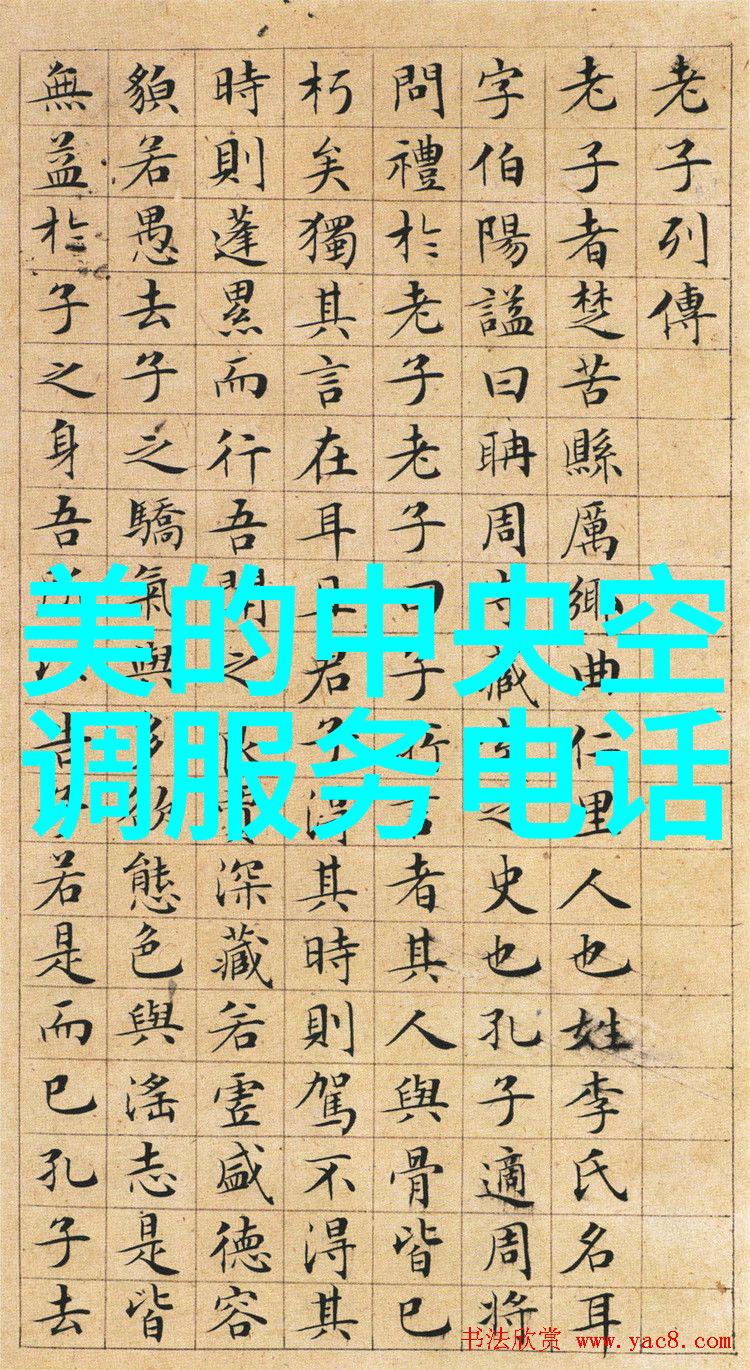 老子列傳
老子者楚苦縣厲鄉曲仁里人也姓李氏名耳
字伯陽謚曰聃周守藏之史也孔子適周將
問禮於老子老子曰子所言者其人與骨皆已
朽矣獨其言在耳且君子得其時則駕不得其
時則蓬累而行吾聞之良賈深藏若虛盛德容
貌若愚去子之驕氣與多欲態色與淫志是皆
無益於子之身吾所告子若是而已孔子去
美的中央空
调服务电话
书法欣赏 www.yac8.com